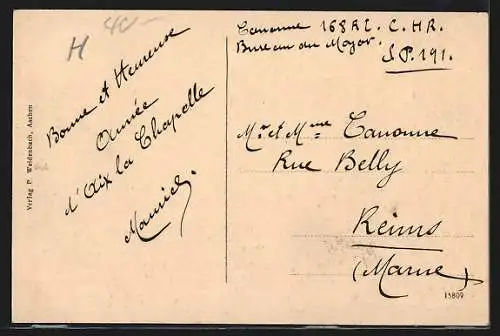 H 40.-
Bonne et Heureuse
Année
d'Aix la Chapelle
Maurice.
Verlag P. Weldenbach, Aachen
Tanonne 168 R.I. C.H.R.
Bureau du Major.
S.P. 191.
Mr et Mme Tanonne
Rue Belly
Reims
(Marne)
15809